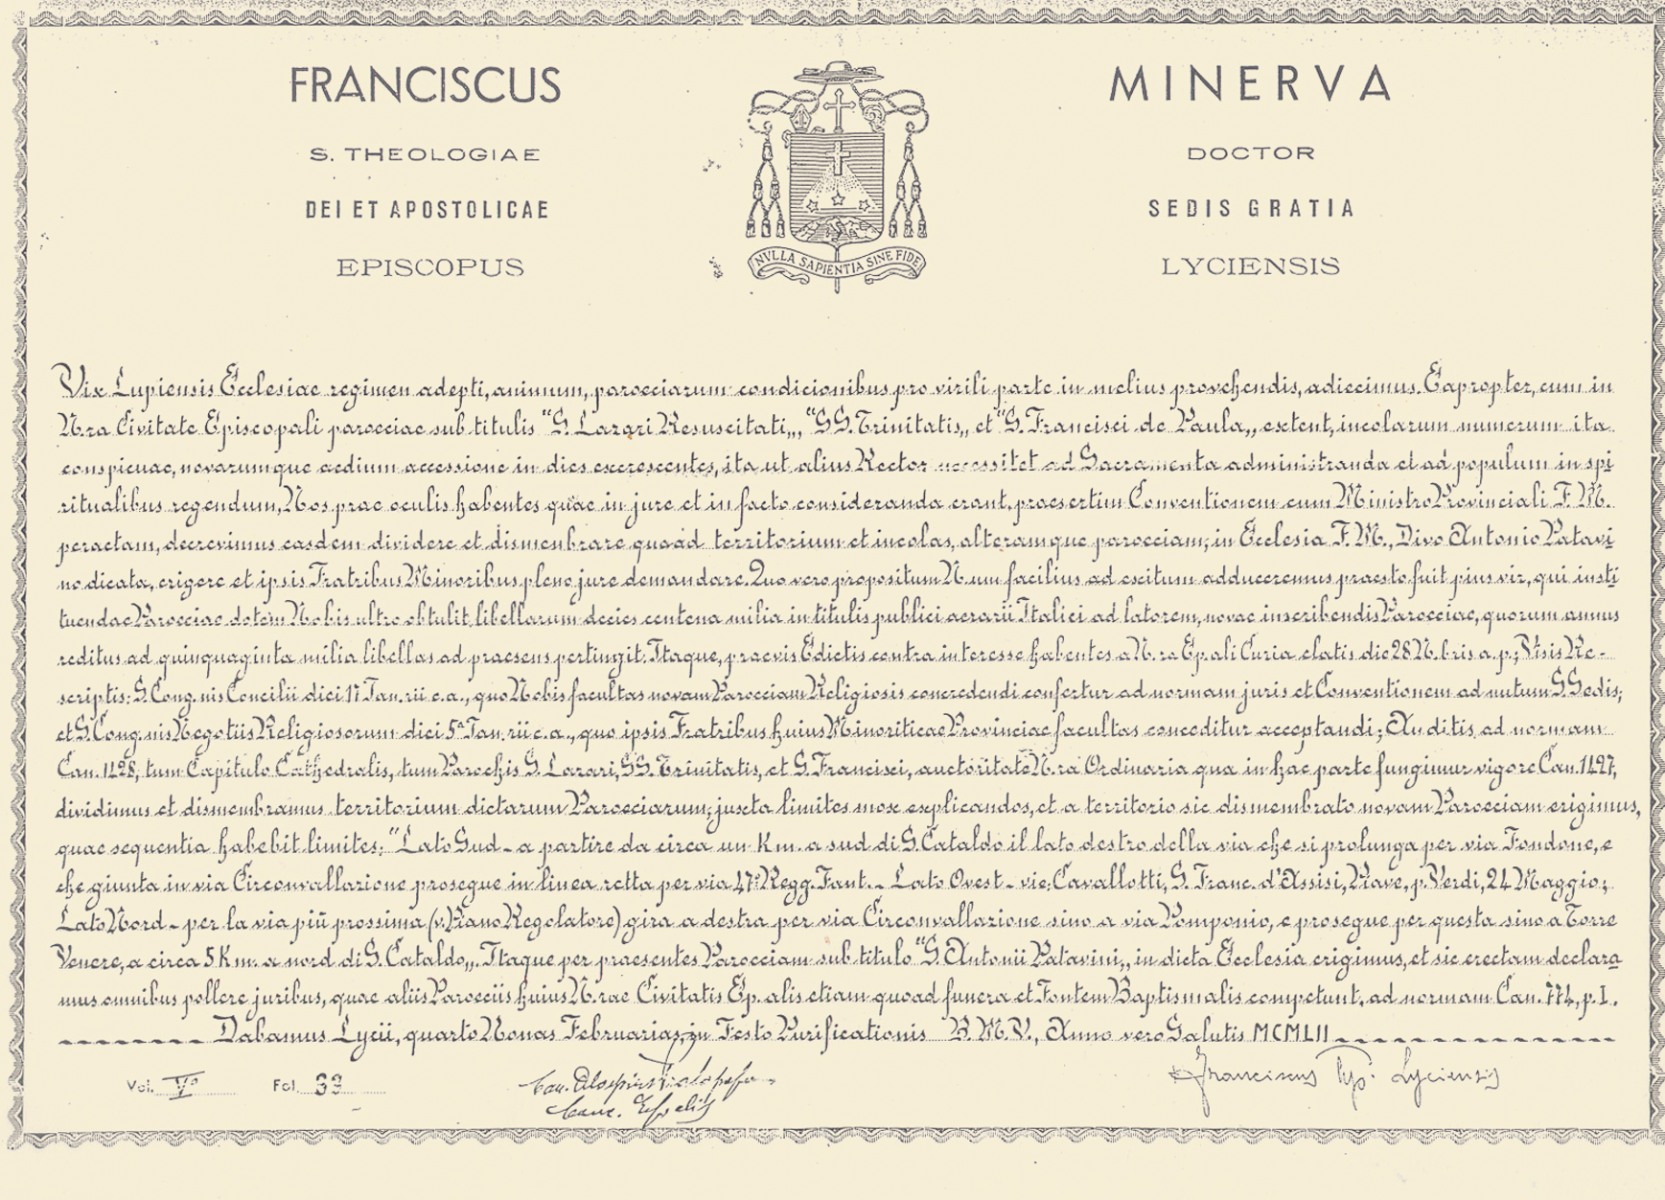 FRANCISCUS MINERVA
S. THEOLOGIAE DOCTOR
DEI ET APOSTOLICAE SEDIS GRATIA
EPISCOPUS LYCIENSIS
NVLLA SAPIENTIA SINE FIDE
Vix Lupiensis Ecclesiae regimen adepti, animum, paroeciarum condicionibus pro virili parte in melius provehendis, adiecimus. Eapropter, cum in
N.ra Civitate Episcopali paroeciae sub titulis "S. Lazari Resuscitati„, "SS. Trinitatis„ et "S. Francisci de Paula„ extent, incolarum numerum ita
conspicuae, novarumque aedium accessione in dies excrescentes, ita ut alius Rector necessitet ad Sacramenta administranda et ad populum in spi
ritualibus regendum, Nos prae oculis habentes quae in jure et in facto consideranda erant, praesertim Conventionem cum Ministro Provinciali F. M.
peractam, decrevimus easdem dividere et dismenbrare quoad territorium et incolas, alteramque paroeciam, in Ecclesia F. M., Divo Antonio Patavi
no dicata, erigere et ipsis Fratribus Minoribus pleno jure demandare. Quo vero propositum N.um facilius ad exitum adduceremus praesto fuit pius vir, qui insti
tuendae Paroeciae dotem Nobis ultro obtulit libellarum decies centena milia in titulis publici aerarii Italici ad latorem, novae inscribendi Paroeciae, quorum annus
reditus ad quinquaginta milia libellas ad praesens pertingit. Itaque, praevis Edictis contra interesse habentes a N.ra Ep.ali Curia elatis die 28 N.bris a.p.; Visis Re-
scriptis: S. Cong.nis Concilii diei 17 Jan.rii c.a., quo Nobis facultas novam Paroeciam Religiosis concredendi confertur ad normam juris et Conventionem ad nutum S. Sedis;
et S. Cong.nis Negotiis Religiosorum diei 5ª Jan.rii c.a., quo ipsis Fratribus huius Minoriticae Provinciae facultas conceditur acceptandi; Auditis ad normam
Can. 1428, tum Capitulo Cathedralis, tum Parochis S. Lazari, SS. Trinitatis, et S. Francisci, auctoritate N.ra Ordinaria qua in hac parte fungimur vigore Can. 1427,
dividimus et dismembramus territorium dictarum Paroeciarum, juxta limites mox explicandos, et a territorio sic dismembrato novam Paroeciam erigimus,
quae sequentia habebit limites: "Lato Sud - a partire da circa un Km. a sud di S. Cataldo il lato destro della via che si prolunga per via Fondone, e
che giunta in via Circonvallazione prosegue in linea retta per via 47º Regg. Fant. - Lato Ovest - vie: Cavallotti, S. Franc. d'Assisi, Piave, p. Verdi, 24 Maggio;
Lato Nord - per la via più prossima (v. Piano Regolatore) gira a destra per via Circonvallazione sino a via Pomponio, e prosegue per questa sino a Torre
Venere, a circa 5 Km. a nord di S. Cataldo„. Itaque per praesentes Paroeciam sub titulo "S. Antonii Patavini„ in dicta Ecclesia erigimus, et sic erectam declara
mus omnibus pollere juribus, quae aliis Paroeciis huius N.rae Civitatis Ep.alis etiam quoad funera et Fontem Baptismalis competunt, ad normam Can. 774, p. I.
Dabamus Lycii, quarto Nonas Februarias, in Festo Purificationis B. M. V., Anno vero Salutis MCMLII
Vol. Vº Fol. 39
Franciscus Ep. Lyciensis
Can.
Canc. Ep.alis